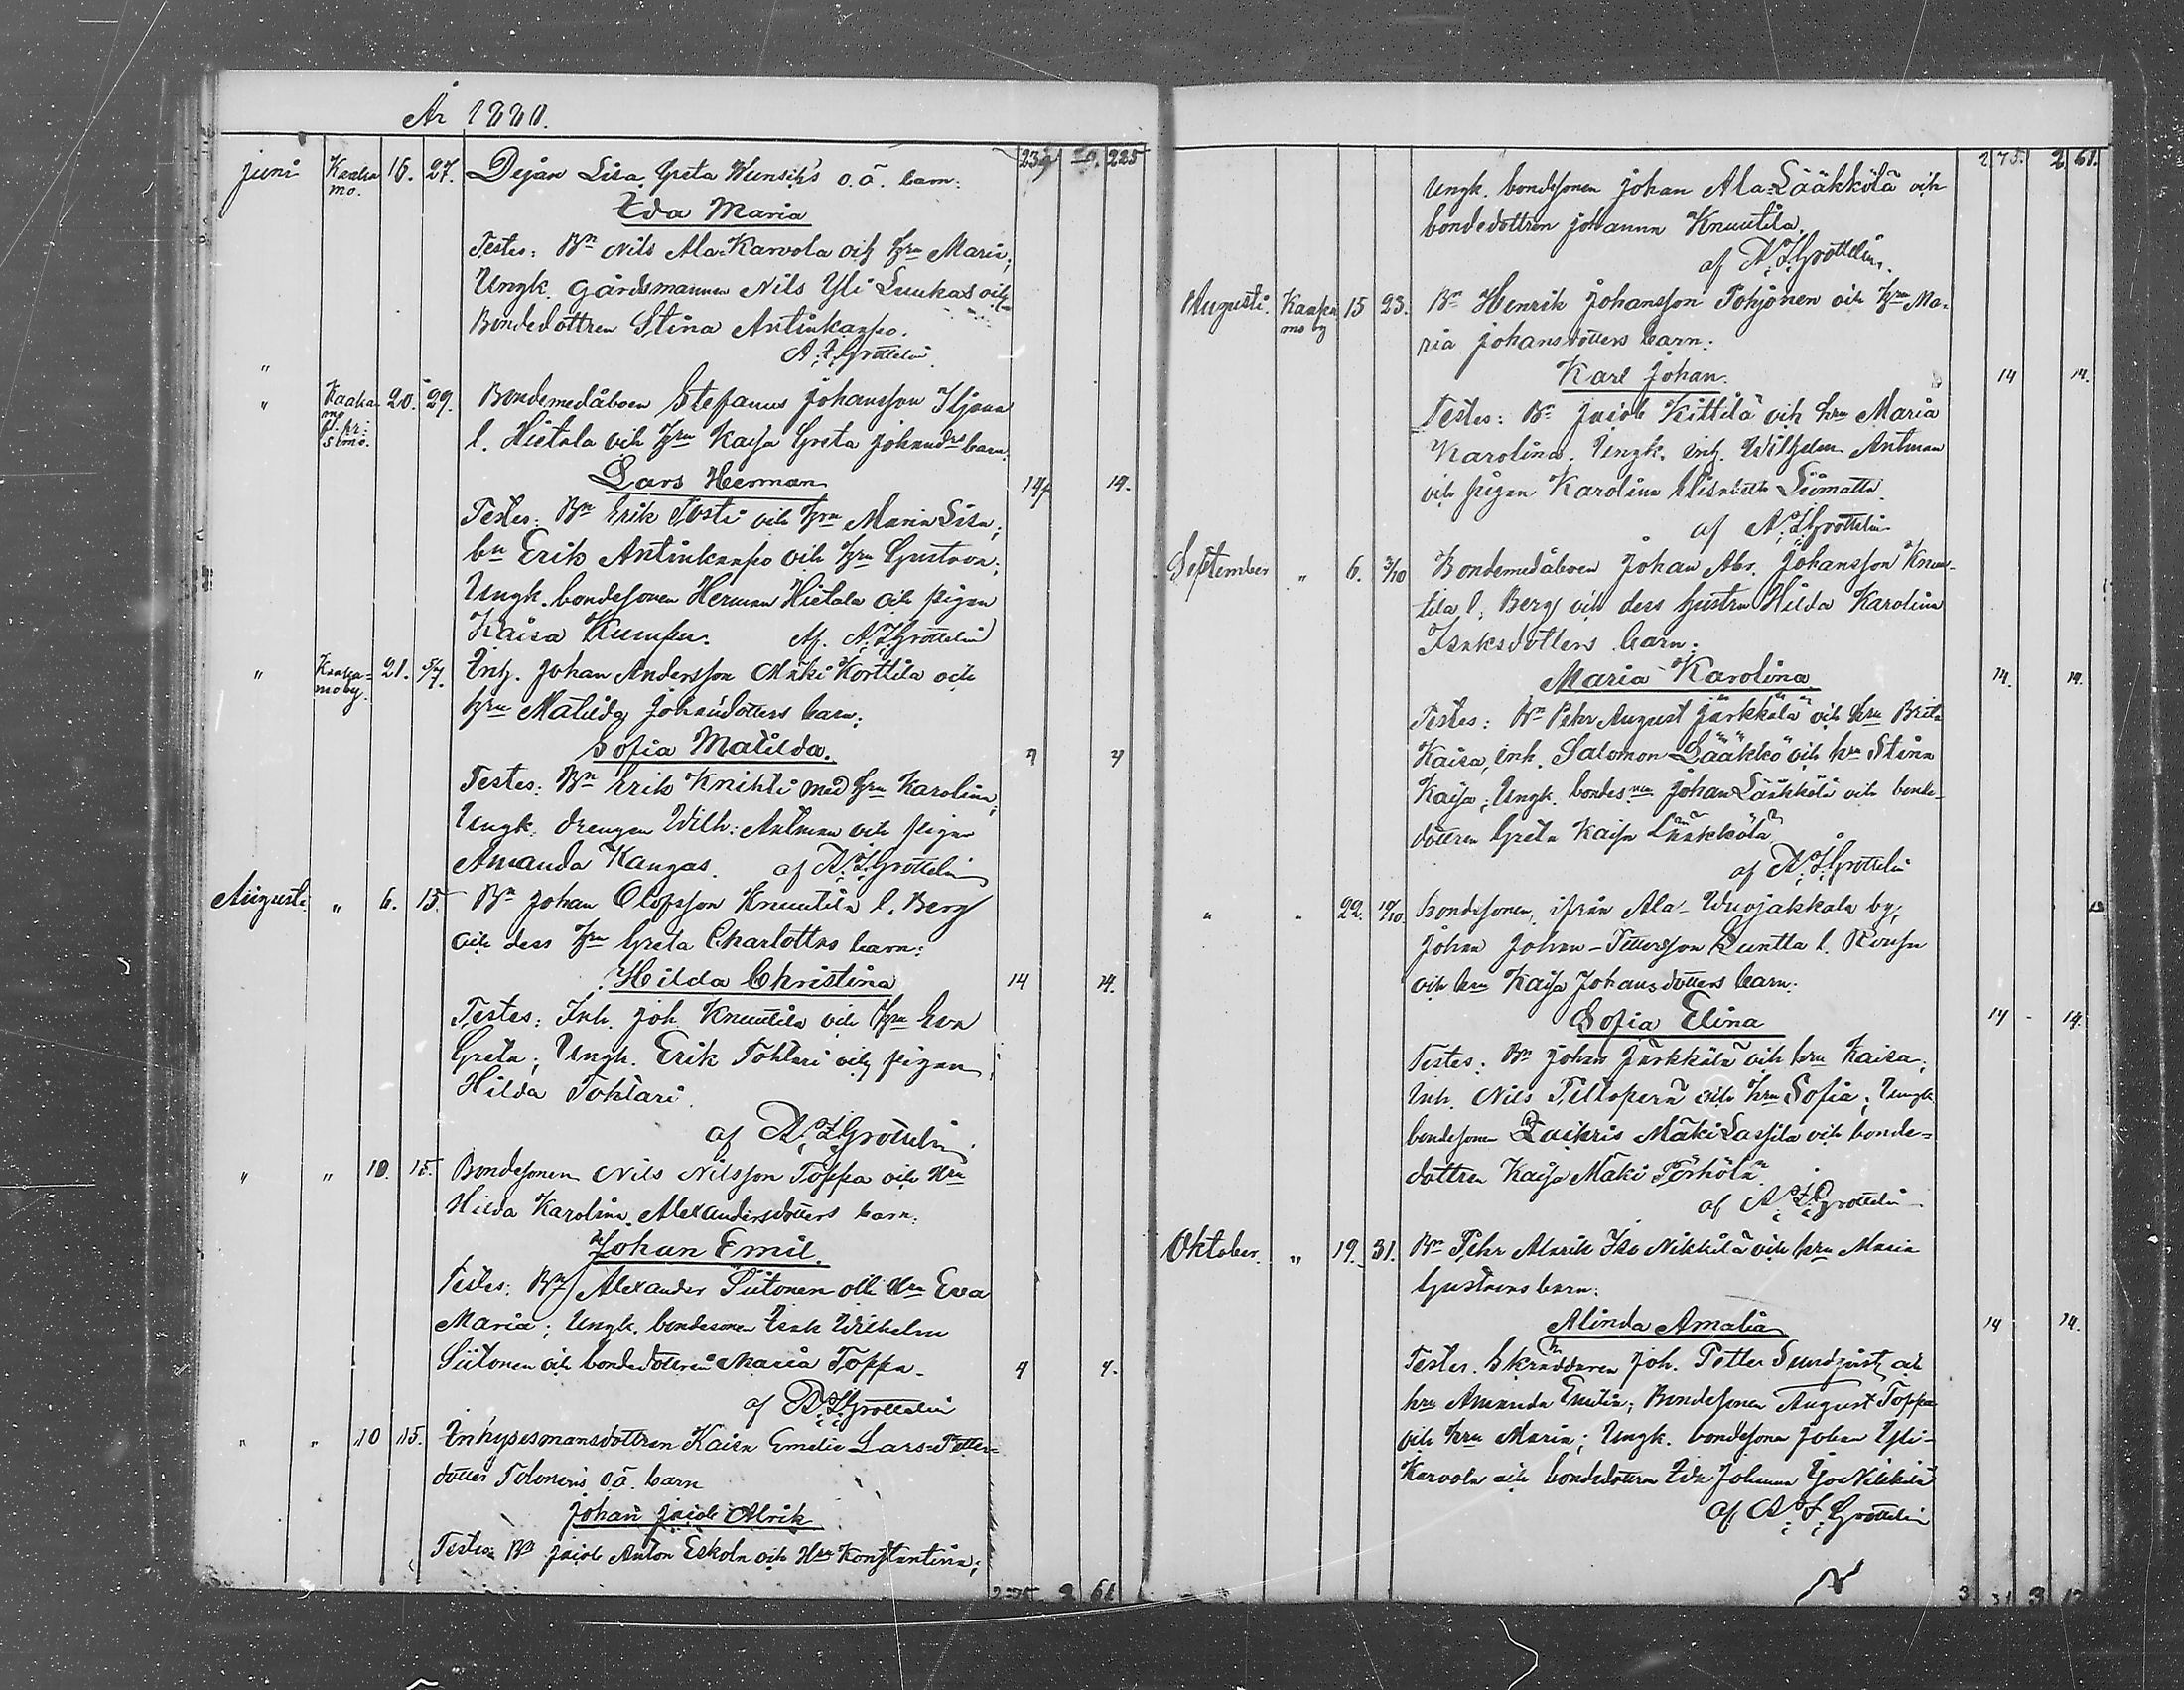 År 1880.
239 20. 225
juni Kaaka 16. 27. Dejan Lisa Greta Wunsik's o.ä. barn:
mo.
Ida Maria
Testes: Bn Nils Ala-Karvola och hru Maria;
Ungk. gårdsmannen Nils Yli Luukas och
Bondedottren Stina Antinkaapo.
A. F. Grottelin
"
" Kaaka 20. 29. Bondemedåboen Stefanus Johansson
mo
simo.
l. Hietala och hru Kajsa Greta Johansdrs barn:
Lars Herman 14 14.
Testes: Bn Erik Posti och hru Maria Lisa;
bn Erik Antinkaapo och hru Gustava;
Ungk. bondesonen Herman Hietala och pigan
Kaisa Af. A. F. Grottelin
" Kaaka= 21. 5/7. Inh. Johan Andersson Mäki Korttila och
mo by.
hru Matilda Johansdotters barn:
Sofia Matilda.
Testes: Bn Erik Knihti med hru Karolina;
Ungk. drengen Wilh: Antman och pigan
Amanda Kangas. af A. F. Grottelin
Augusti. " 6. 15. Bn Johan Olofsson Knuutila l. Berg
och dess hru Greta Charlottas barn:
Hilda Christina 14 14.
Testes: Inh. Joh. Knuutila och hru Eva
Greta; Ungk. Erik Tohtari och pigan
Hilda Tohtari.
af A. F. Grottelin.
" " 10. 15. Bondesonen Nils Nilsson Toppa och Hru
Hilda Karolina Alexandersdotters barn:
Johan Emil.
Testes: Bn Alexander Siitonen och Hru Eva
Maria; Ungk. bondesonen Isak Wilhelm
Siitonen och bondedottren Maria Toppa.
af A. F. Grottelin
" " 10 15. Inhysesmansdottren Kaisa Emelie Lars-Petter=
dotter Tolonens o.ä. barn
Johan Jacob Alrik
Testes: Bn Jacob Anton Eskola och Hru Konstantina;
275 2 61
275. 2 61.
Ungk. bondesonen Johan Ala-Lääkkölä och
bondedottren Johanna Knuutila.
af A. F. Grottelin.
Augusti. Kaaka 15 23. Bn Henrik Johansson Pohjonen och hru Ma-
mo by
ria Johansdotters barn:
Karl Johan. 14 14.
Testes: Bn Jacob Kittilä och hru Maria
Karolina. Ungk. inh. Wilhelm Antman
och pigan Karolina
af A. F. Grottelin
September " 6. 3/10 Bondemedåboen Johan Abr. Johansson Knuu-
tila l. Berg och dess hustru Hilda Karolina
Isaksdotters barn:
Maria Karolina 14. 14.
Testes: Bn Pehr August Järkkälä och hru Brita
Kaisa, inh. Salomon Lääkkö och hru Stina
Kajsa; Ungk. bondes.nen Johan Lääkkölä och bonde-
dottren Greta Kajsa Lääkkölä
af A. F. Grottelin
" " 22. 10/10. Bondesonen, ifrån Ala-Wuojakkala by,
Johan Johan-Pettersson Luntta l.
och hru Kajsa Johansdotters barn:
Sofia Elina 14 14.
Testes: Bn Johan Järkkälä och hru Kaisa;
Inh. Nils Peltoperä och hru Sofia; Ungk.
bondesonen Zackris Mäki Lassila och bonde=
dottren Kajsa Mäki Pörhölä
af A. F. Grottelin
Oktober. " 19. 31. Bn Pehr Alarik Iso Nikkilä och hru Maria
Gustavas barn:
Alinda Amalia 14 14.
Testes. Skräddaren Joh. Petter Sundqvist och
hru Amanda Emilia; Bondesonen August Toppa
och hru Maria; Ungk. bondesonen Johan Yli-
Karvola och bondedottren Ida Johanna Iso Nikkilä
af A. F. Grottelin